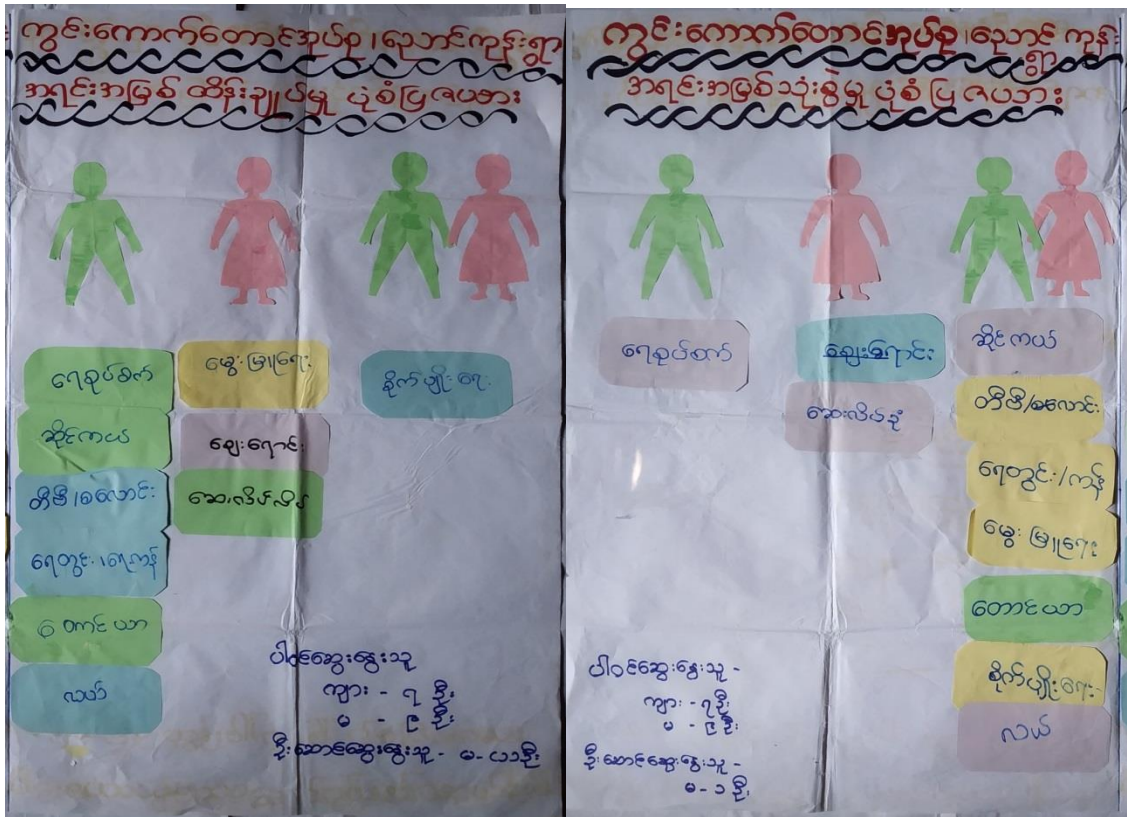 ကွင်းကောက်တောင်အုပ်စု၊ညောင်ကုန်းရွာ
အရင်းအမြစ် ထိန်းချုပ်မှု ပုံစံပြဇယား
ရေစုပ်စက်
ဆိုင်ကယ်
တီဗီ/စလောင်း
ရေတွင်း၊ရေကန်
တောင်ယာ
လယ်
မွေးမြူရေး
ဈေးရောင်း
ဆေးလိပ်လိပ်
စိုက်ပျိုးရေး
ပါဝင်ဆွေးနွေးသူ
ကျား - ၇ ဦး
မ - ၉ ဦး
ဦးဆောင်ဆွေးနွေးသူ - မ -
ကွင်းကောက်တောင်အုပ်စု၊ညောင်ကုန်း
ရွာ
အရင်းအမြစ်သုံးစွဲမှု ပုံစံပြဇယား
ရေစုပ်စက်
ဈေးရောင်း
ဆေးလိပ်ခုံ
ဆိုင်ကယ်
တီဗီ/စလောင်း
ရေတွင်း/ကန်
မွေးမြူရေး
တောင်ယာ
စိုက်ပျိုးရေး
လယ်
ပါဝင်ဆွေးနွေးသူ -
ကျား - ၇ဦး
မ - ၉ ဦး
ဦးဆောင်ဆွေးနွေးသူ -
မ - ၁ ဦး